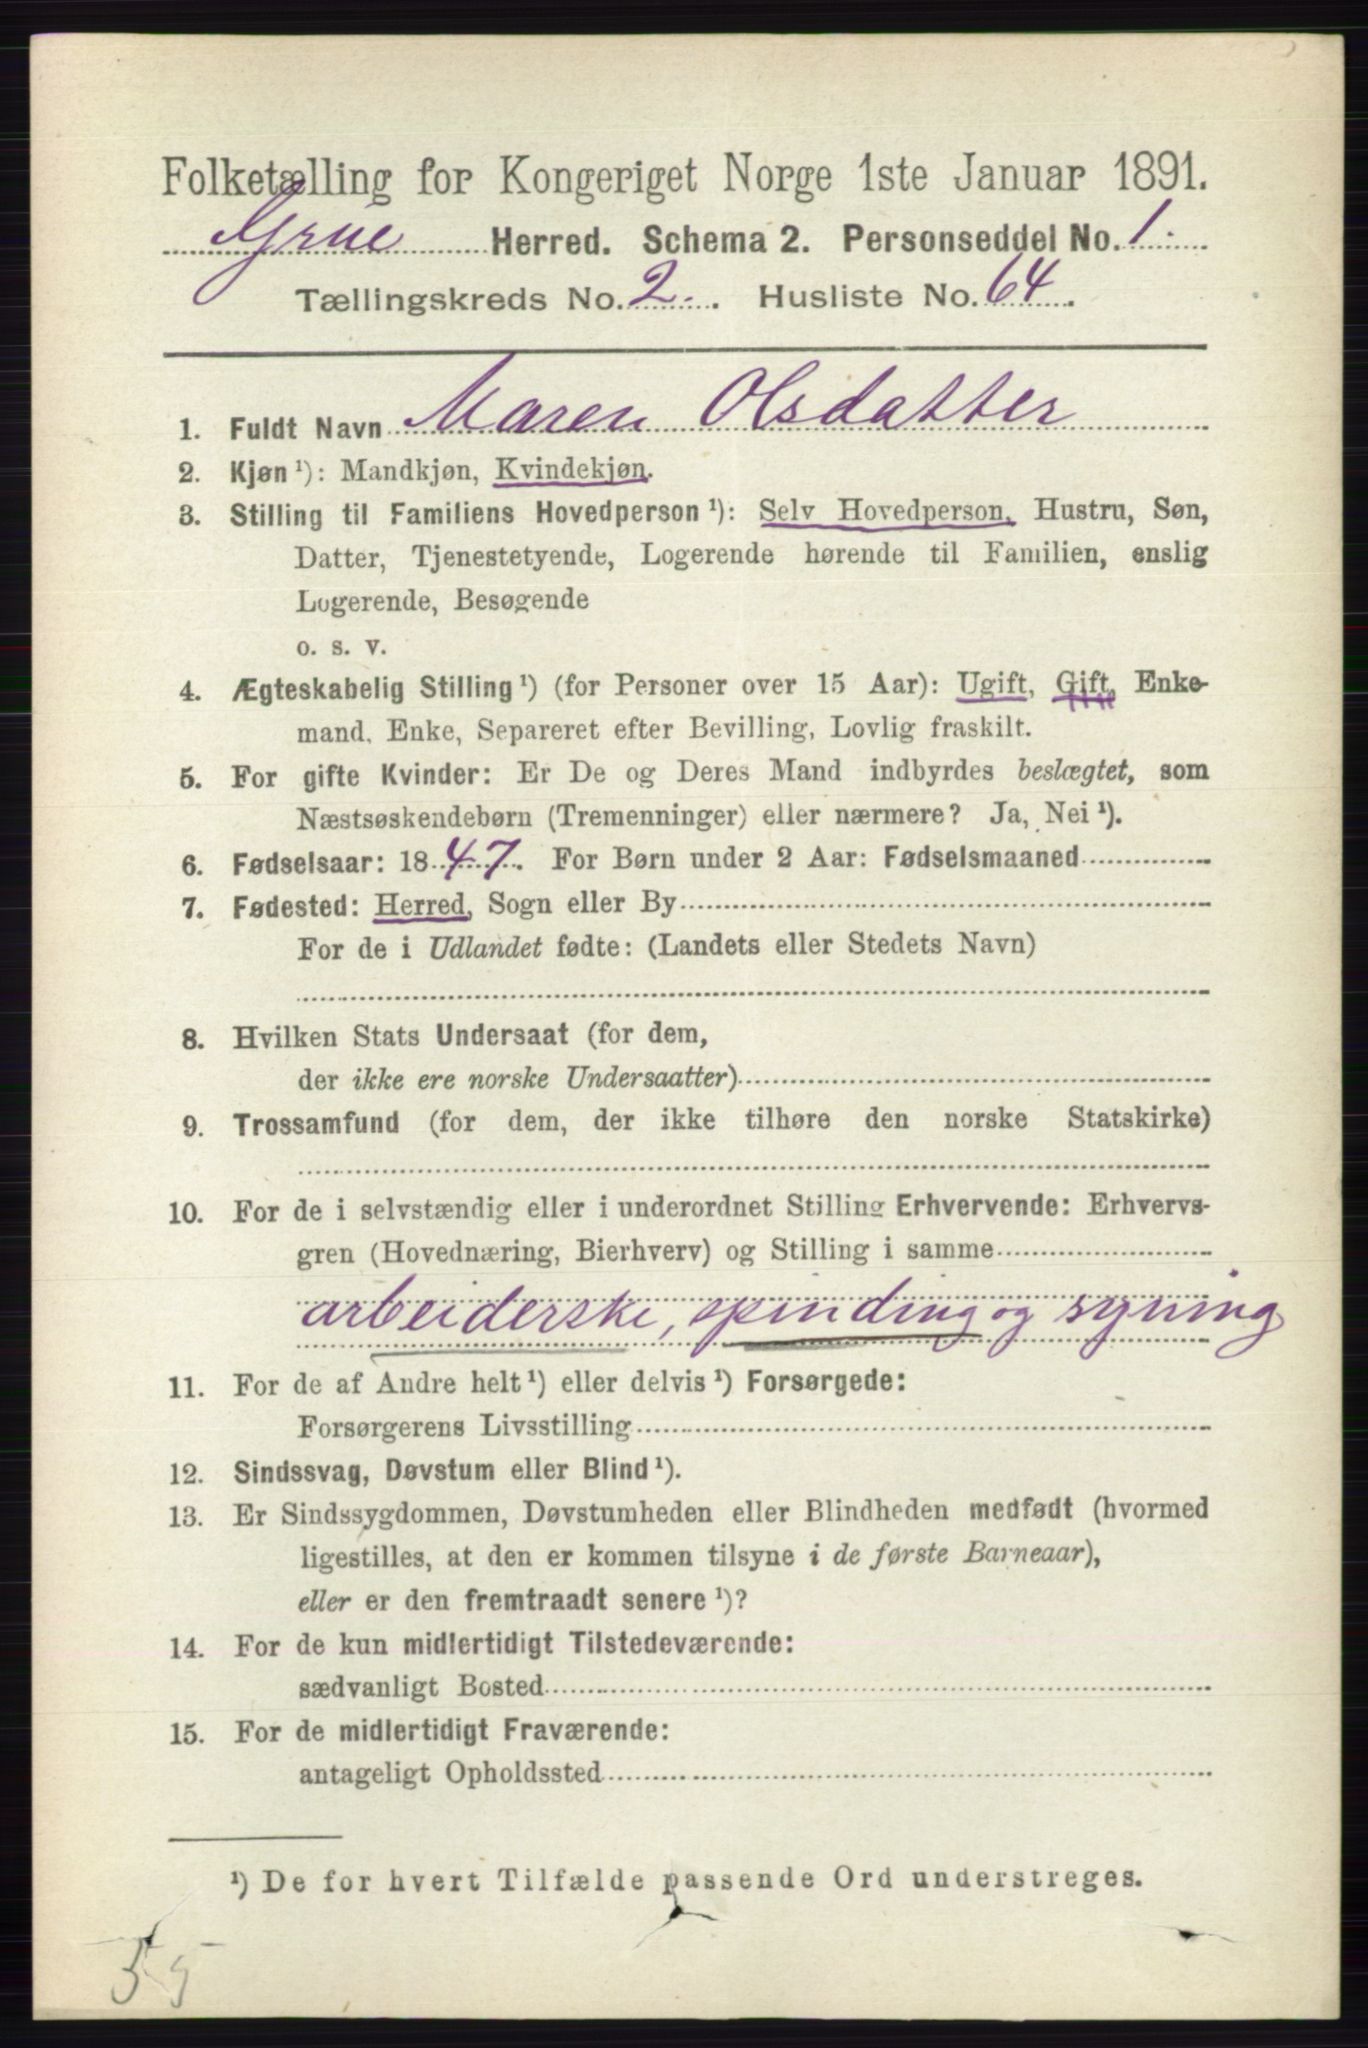 Folketælling for Kongeriget Norge 1ste Januar 1891.
Grue Herred. Schema 2. Personseddel No. 1.
Tællingskreds No. 2. Husliste No. 64.
1. Fuldt Navn Maren Olsdatter
2. Kjøn ¹): Mandkjøn, Kvindekjøn.
3. Stilling til Familiens Hovedperson ¹): Selv Hovedperson, Hustru, Søn,
Datter, Tjenestetyende, Logerende hørende til Familien, enslig
Logerende, Besøgende
o. s. v.
4. Ægteskabelig Stilling ¹) (for Personer over 15 Aar): Ugift, Gift, Enke-
mand, Enke, Separeret efter Bevilling, Lovlig fraskilt.
5. For gifte Kvinder: Er De og Deres Mand indbyrdes beslægtet, som
Næstsøskendebørn (Tremenninger) eller nærmere? Ja, Nei ¹).
6. Fødselsaar: 1847. For Børn under 2 Aar: Fødselsmaaned
7. Fødested: Herred, Sogn eller By
For de i Udlandet fødte: (Landets eller Stedets Navn)
8. Hvilken Stats Undersaat (for dem,
der ikke ere norske Undersaatter)
9. Trossamfund (for dem, der ikke tilhøre den norske Statskirke)
10. For de i selvstændig eller i underordnet Stilling Erhvervende: Erhvervs-
gren (Hovednæring, Bierhverv) og Stilling i samme
arbeiderske, spinding og syning
11. For de af Andre helt ¹) eller delvis ¹) Forsørgede:
Forsørgerens Livsstilling
12. Sindssvag, Døvstum eller Blind ¹).
13. Er Sindssygdommen, Døvstumheden eller Blindheden medfødt (hvormed
ligestilles, at den er kommen tilsyne i de første Barneaar),
eller er den fremtraadt senere ¹)?
14. For de kun midlertidigt Tilstedeværende:
sædvanligt Bosted
15. For de midlertidigt Fraværende:
antageligt Opholdssted
¹) De for hvert Tilfælde passende Ord understreges.
35